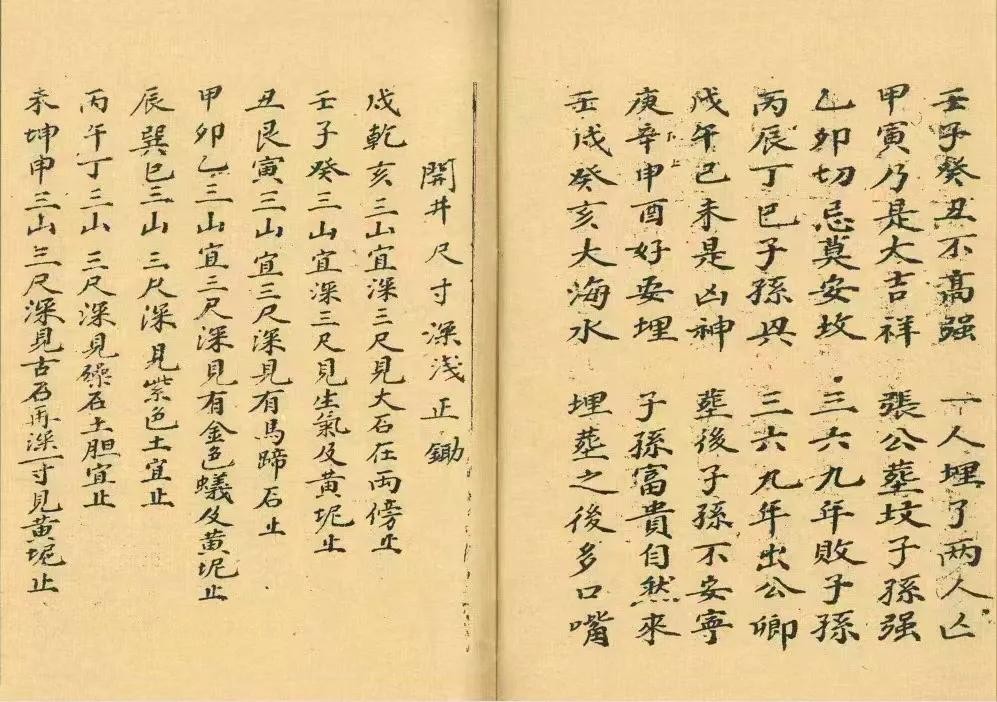 壬子癸丑不髙强 一人埋了两人亡
甲寅乃是大吉祥 張公塟坟子孫强
乙卯切忌莫安坟 三六九年敗子孫
丙辰丁巳子孫興 三六九年出公卿
戊午已未是凶神 塟後子孫不安寧
庚辛申酉好安埋 子孫富貴自然來
壬戌癸亥大海水 埋塟之後多口嘴
開井尺寸深浅正鋤
戌乾亥三山宜深三尺見大石在両傍止
壬子癸三山宜深三尺見生氣及黄坭止
丑艮寅三山宜三尺深見有馬蹄石止
甲卯乙三山宜三尺深見有金色蟻及黄坭止
辰巽巳三山三尺深見紫色土宜止
丙午丁三山三尺深見石土胆宜止
未坤申三山三尺深見古石再深一寸見黄坭止